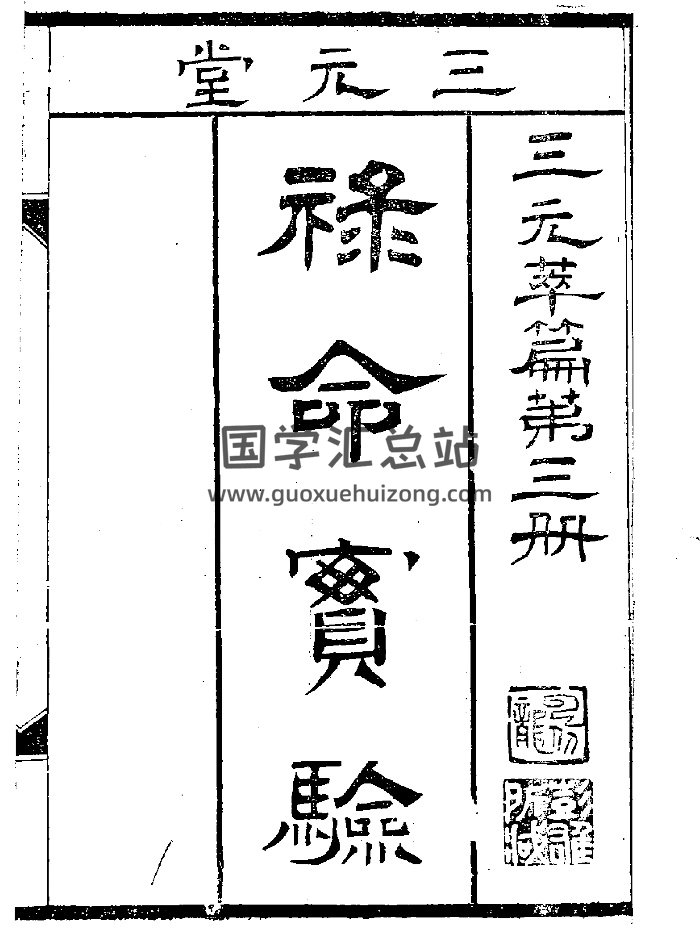 三元堂
三元萃篇第三冊
祿命實驗
国学汇总站
www.guoxuehuizong.com